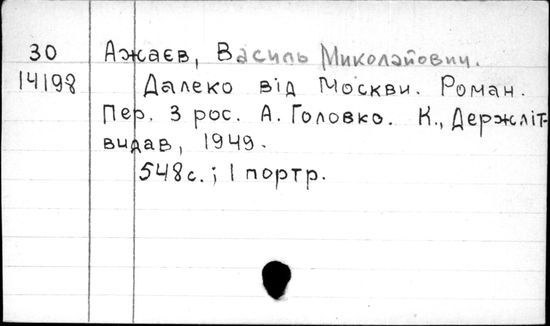 30 Ажаєв, Василь Миколайович.
14198 Далеко від Москви. Роман.
Пер. З рос. А. Головко. К., Держліт-
видав, 1949.
548с.; 1 портр.